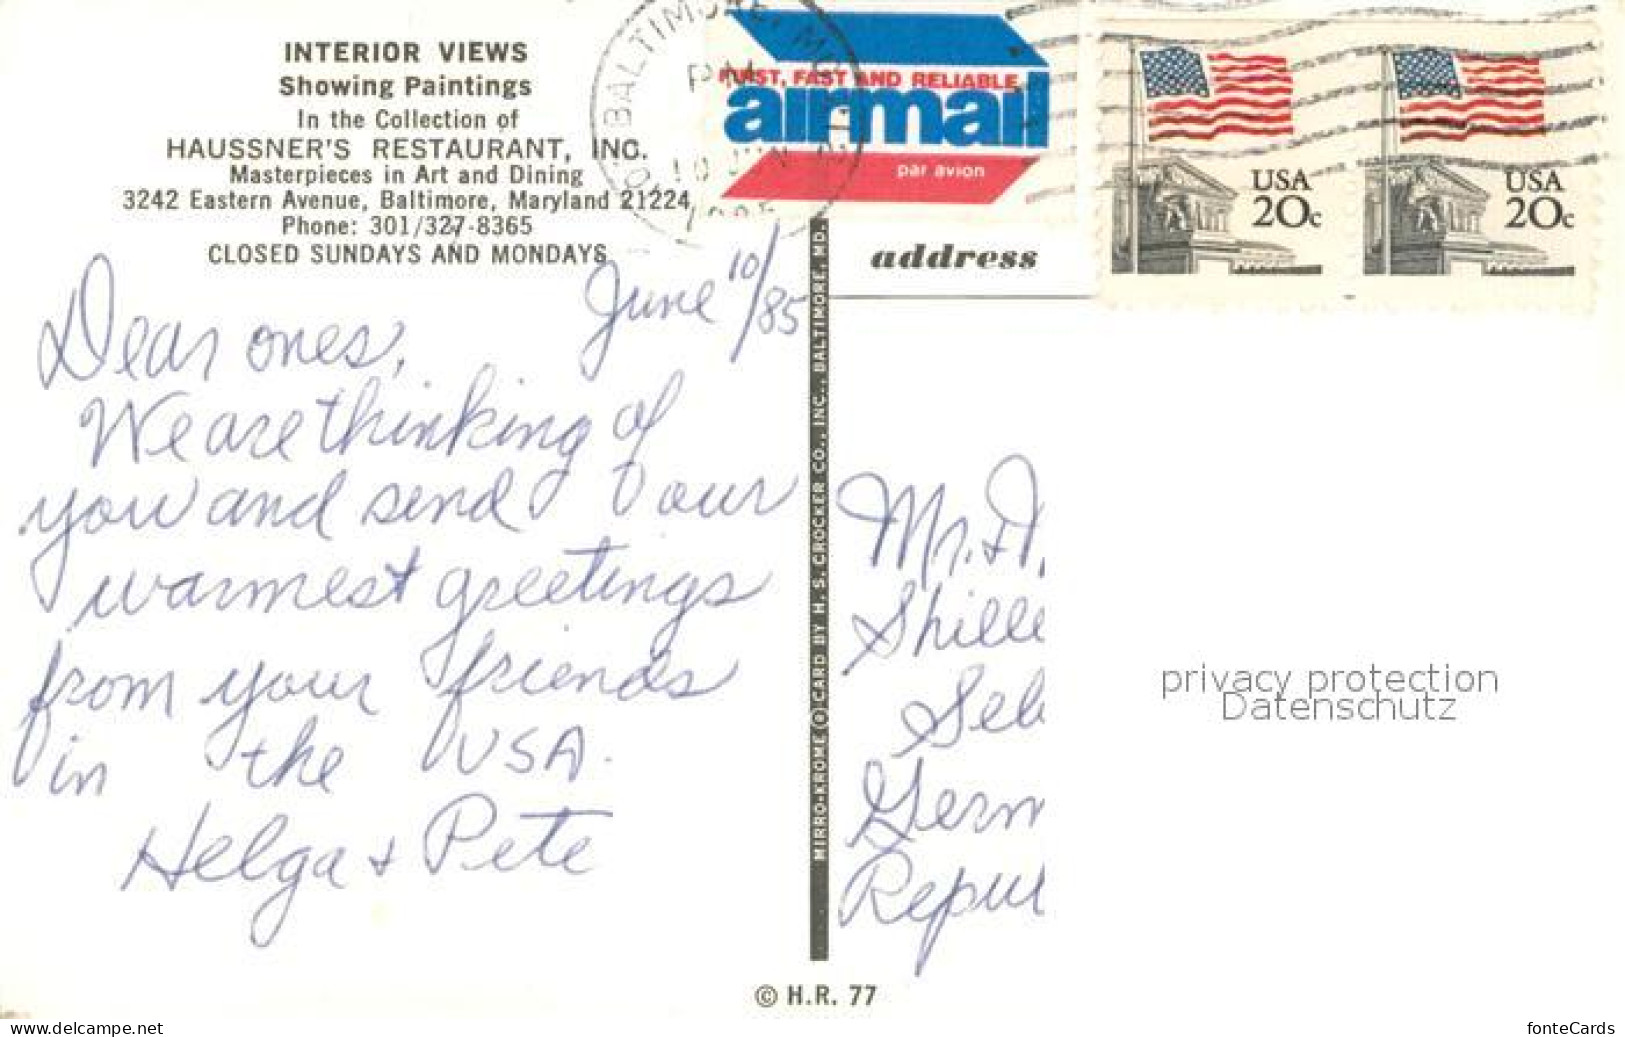 INTERIOR VIEWS
Showing Paintings
In the Collection of
HAUSSNER'S RESTAURANT, INC.
Masterpieces in Art and Dining
3242 Eastern Avenue, Baltimore, Maryland 21224
Phone: 301/327-8365
CLOSED SUNDAYS AND MONDAYS
BALTIMORE, MD
PM
10 JUN
1985
FIRST, FAST AND RELIABLE
airmail
par avion
USA
20c
USA
20c
address
June 10/85
Dear ones,
We are thinking of
you and send our
warmest greetings
from your friends
in the USA.
Helga & Pete
MIRRO-KROME CARD BY H. S. CROCKER CO., INC., BALTIMORE, MD.
Mr. &
Shille
Selb
Germ
Repu
privacy protection
Datenschutz
© H.R. 77
www.delcampe.net
fonteCards